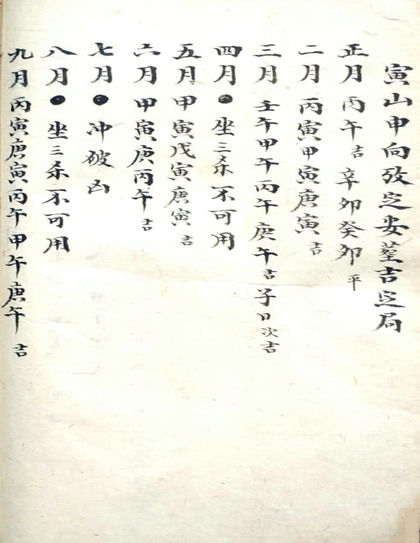 寅山申向攷定安葬吉定局
正月 丙午吉辛卯癸卯平
二月 丙寅甲寅庚寅吉
三月 壬午甲午丙午庚午吉子日次吉
四月 ●坐三杀不可用
五月 甲寅戊寅庚寅吉
六月 甲寅庚丙午吉
七月 ●冲破凶
八月 ●坐三杀不可用
九月 丙寅庚寅丙午甲午庚午吉